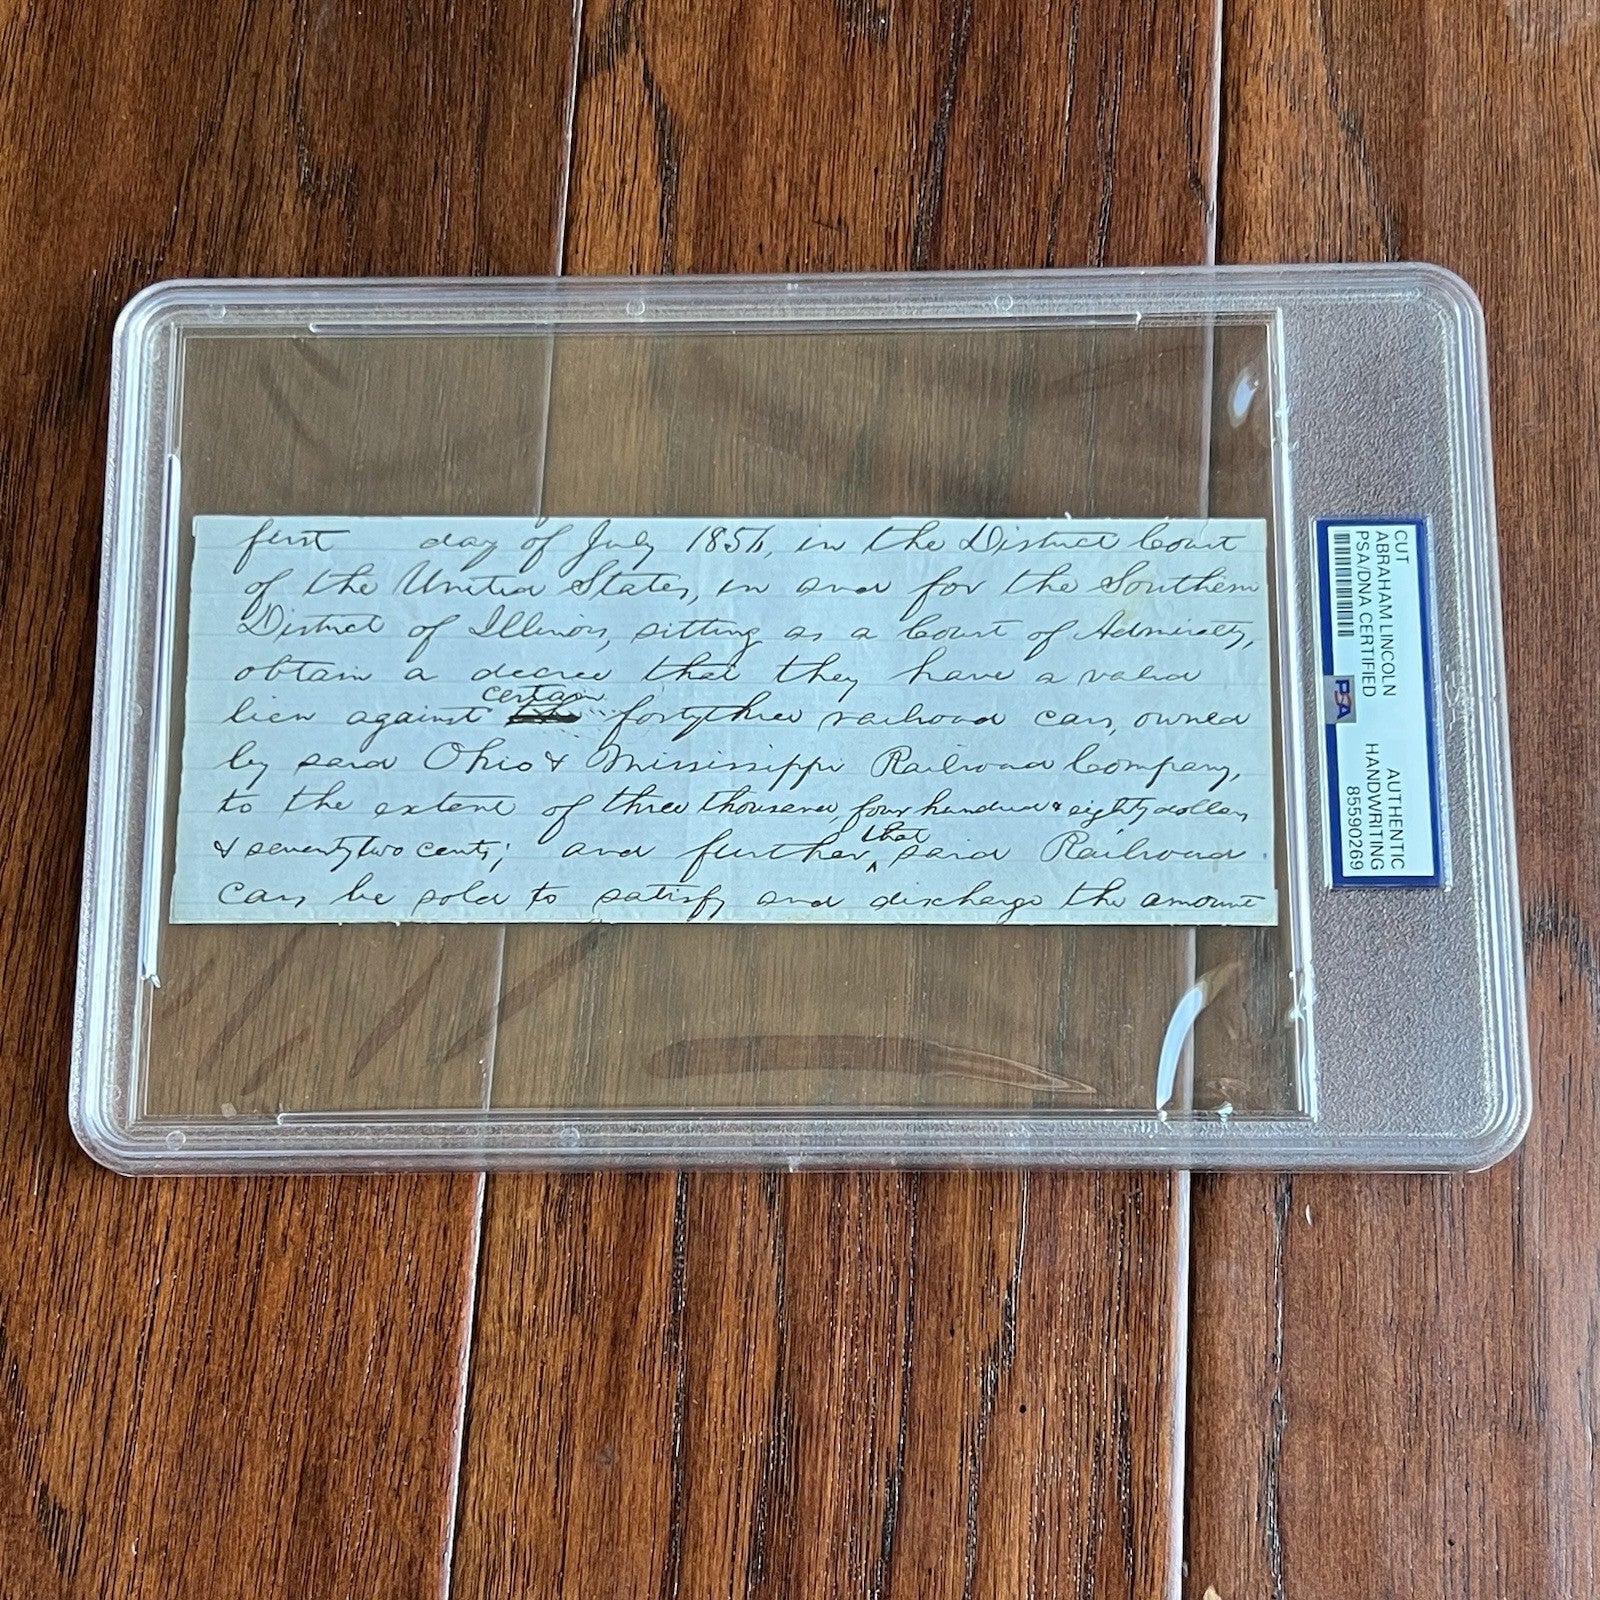 first day of July 1856, in the District Court
of the United States, in and for the Southern
District of Illinois, sitting as a Court of Admiralty,
obtain a decree that they have a valid
certain
lien against forty three railroad cars, owned
by said Ohio & Mississippi Railroad Company,
to the extent of three thousand, four hundred & eighty dollars
& seventy two cents; and further, that said Railroad
cars be sold to satisfy and discharge the amount
CUT
ABRAHAM LINCOLN
PSA/DNA CERTIFIED
PSA
AUTHENTIC
HANDWRITING
85590269